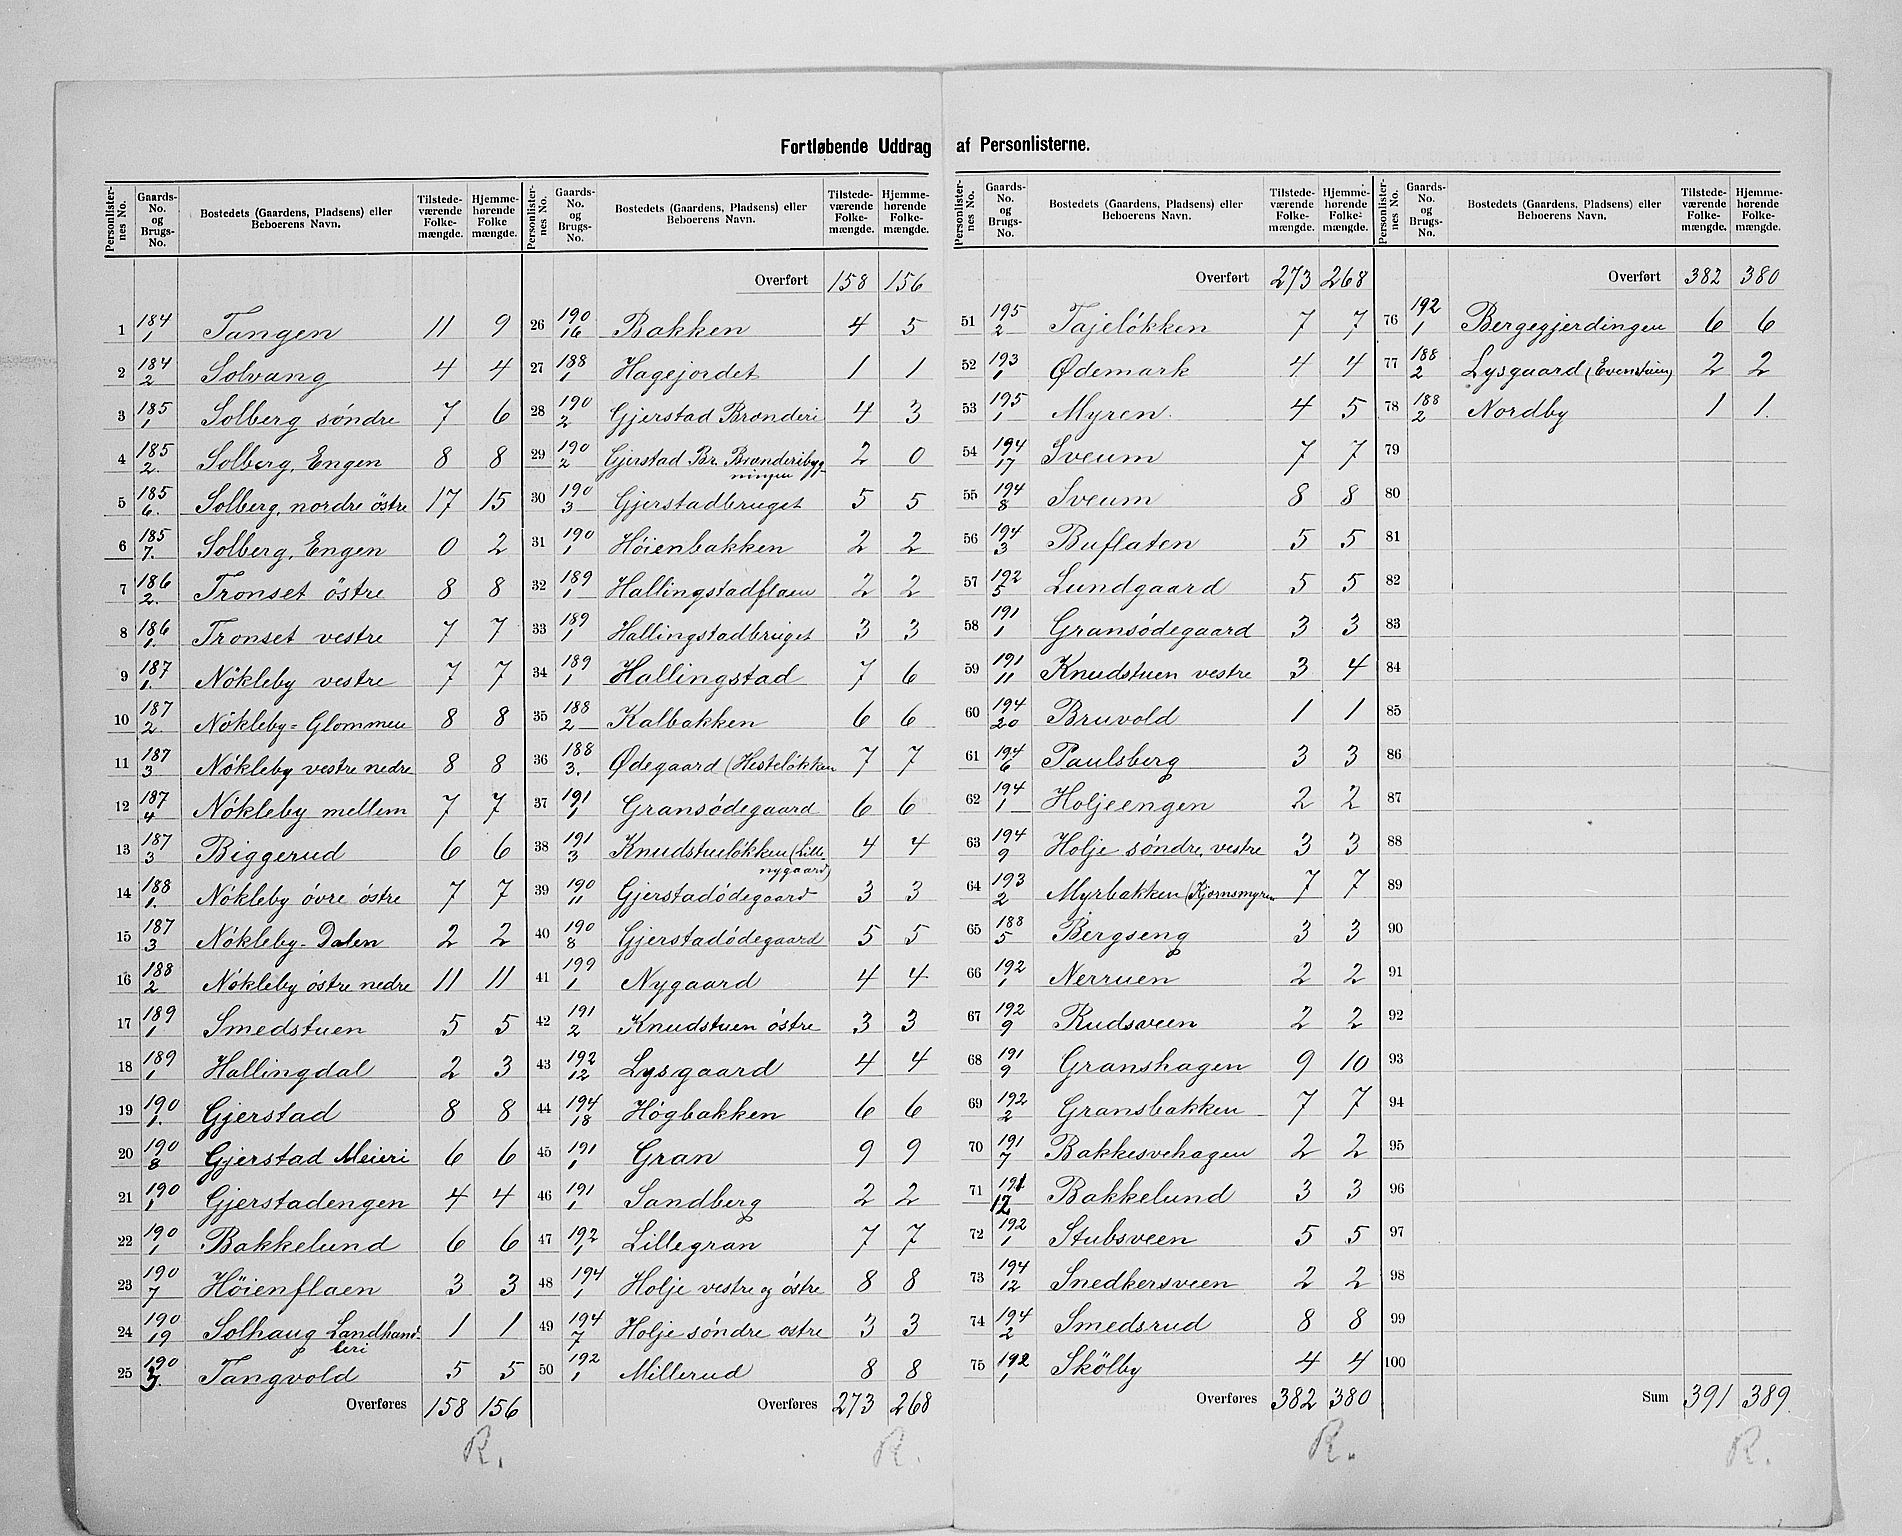 Fortløbende Uddrag af Personlisterne.
Personlister-nes No. Gaards-No. og Brugs-No. Bostedets (Gaardens, Pladsens) eller Beboerens Navn. Tilstede-værende Folke-mængde. Hjemme-hørende Folke mængde.
1 184/1 Tangen 11 9
2 184/2 Solvang 4 4
3 185/1 Solberg söndre 7 6
4 185/2. Solberg, Engen 8 8
5 185/6. Solberg, nordre östre 17 15
6 185/7. Solberg, Engen 0 2
7 186/2. Tronset östre 8 8
8 186/1. Tronset vestre 7 7
9 187/1. Nökleby vestre 7 7
10 187/2 Nökleby=Glommen 8 8
11 187/3 Nökleby vestre nedre 8 8
12 187/4 Nökleby mellem 7 7
13 187/3 Biggerud 6 6
14 188/1. Nökleby övre östre 7 7
15 187/3 Nökleby-Dalen 2 2
16 188/2 Nökleby östre nedre 11 11
17 189/1 Smedstuen 5 5
18 189/1 Hallingdal 2 3
19 190/1. Gjerstad 8 8
20 190/8 Gjerstad Meieri 6 6
21 190/1 Gjerstadengen 4 4
22 190/1 Bakkelund 6 6
23 190/7 Höienflaen 3 3
24 190/19 Solhaug Landhand-
leri 1 1
25 190/3. Tangvold 5 5
Overføres 158 156
R.
Personlister-nes No. Gaards-No. og Brugs-No. Bostedets (Gaardens, Pladsens) eller Beboerens Navn. Tilstede-værende Folke-mængde. Hjemme-hørende Folke-mængde.
Overført 158 156
26 190/16 Bakken 4 5
27 188/1 Hagejordet 1 1
28 190/2 Gjerstad Brænderi 4 3
29 190/2 Gjerstad Br. Brænderibyg-
ningen 2 0
30 190/3 Gjerstadbruget 5 5
31 190/1 Höienbakken 2 2
32 189/1 Hallingstadflaen 2 2
33 189/1 Hallingstadbruget 3 3
34 189/1 Hallingstad 7 6
35 188/2 Kalbakken 6 6
36 188/3. Ødegaard (Hestelökken 7 7
37 191/1 Gransödegaard 6 6
38 191/3 Knudstuelökken (Lille
nygaard) 4 4
39 190/11 Gjerstadödegaard 3 3
40 190/8 Gjerstadödegaard 5 5
41 199/1 Nygaard 4 4
42 191/2 Knudstuen östre 3 3
43 192/12 Lysgaard 4 4
44 194/18 Högbakken 6 6
45 191/1 Gran 9 9
46 191/1 Sandberg 2 2
47 192/1 Lillegran 7 7
48 194/1 Holje vestre og östre 8 8
49 194/7 Holje söndre östre 3 3
50 192/1 Millerud 8 8
Overføres 273 268
R.
Personlister-nes No. Gaards-No. og Brugs-No. Bostedets (Gaardens, Pladsens) eller Beboerens Navn. Tilstede-værende Folke-mængde. Hjemme-hørende Folke-mængde.
Overført 273 268
51 195/2 Tajelökken 7 7
52 193/1 Ødemark 4 4
53 195/1 Myren. 4 5
54 194/17 Sveum 7 7
55 194/8 Sveum 8 8
56 194/3 Buflaten 5 5
57 192/5 Lundgaard 5 5
58 191/1 Gransödegaard 3 3
59 191/11 Knudstuen vestre 3 4
60 194/20 Bruvold 1 1
61 194/6 Paulsberg 3 3
62 194/1 Holjeengen 2 2
63 194/9 Holje söndre, vestre 3 3
64 193/2 Myrbakken (Kjomsmyren 7 7
65 188/5 Bergseng 3 3
66 192/1 Nerruen 2 2
67 192/9 Rudsveen 2 2
68 191/9 Granshagen 9 10
69 192/2 Gransbakken 7 7
70 191/7 Bakkesvehagen 2 2
71 191/12 Bakkelund 3 3
72 192/1 Stubsveen 5 5
73 194/12 Snedkersveen 2 2
74 194/2 Smedsrud 8 8
75 192/1 Skölby 4 4
Overføres 382 380
R.
Personlister-nes No. Gaards-No. og Brugs-No. Bostedets (Gaardens, Pladsens) eller Beboerens Navn. Tilstede-værende Folke-mængde. Hjemme-hørende Folke-mængde.
Overført 382 380
76 192/1 Bergegjerdingen 6 6
77 188/2 Lysgaard (Evenstuen) 2 2
78 188/2 Nordby 1 1.
79
80
81
82
83
84
85
86
87
88
89
90
91
92
93
94
95
96
97
98
99
100
Sum 391 389.
R.